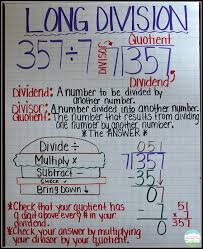 LONG DIVISION
357÷7
Quotient
DIVISOR
7 357
Dividend
Dividend: A number to be divided by
another number.
Divisor: A number divided into another number.
Quotient: The number that results from dividing
one number by another number.
*The ANSWER*
Divide ÷
Multiply ×
Subtract -
CHECK ✓
Bring Down ↓
051
7 357
-35↓
07
-7
0
*Check that your quotient has
a digit above every # in your
dividend.
*Check your answer by multiplying
your divisor by your quotient.
51
×7
357